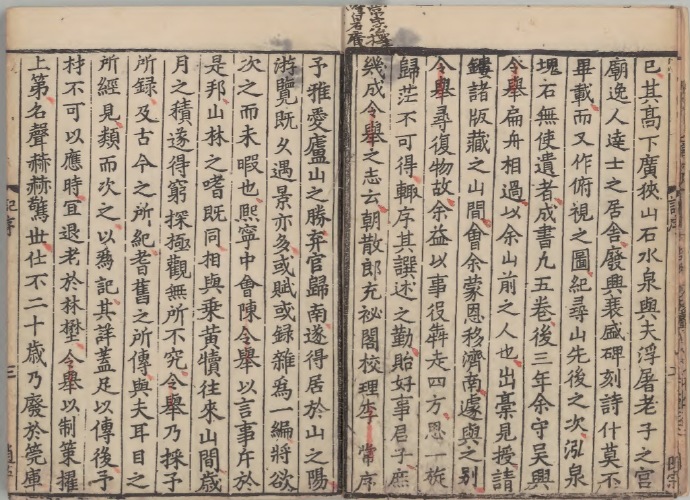 已其高下廣狹山石水泉與夫浮屠老子之宮
廟逸人達士之居舍廢興衰盛碑刻詩什莫不
畢載而又作俯視之圖紀尋山先後之次泓泉
塊石無使遺者成書凡五卷後三年余守吳興
令舉扁舟相過以余山前之人也出藁見授請
鏤諸版藏之山間會余蒙恩移濟南遽與之別
令舉尋復物故余益以事役犇走四方思一旋
歸茫不可得輙序其譔述之勤貽好事君子庶
幾成令舉之志云朝散郎充祕閣校理李常序
予雅愛廬山之勝弃官歸南遂得居於山之陽
游覽既久遇景亦多或賦或録雜爲一編將欲
次之而未暇也熙寧中會陳令舉以言事斥於
是邦山林之嗜既同相與乗黃犢往來山間歲
月之積遂得窮探極觀無所不究令舉乃採予
所録及古今之所紀耆舊之所傳與夫耳目之
所經見類而次之以爲記其詳蓋足以傳後予
材不可以應時冝退老於林壄令舉以制策擢
上第名聲赫赫驚世仕不二十歲乃廢於筦庫
記序
三